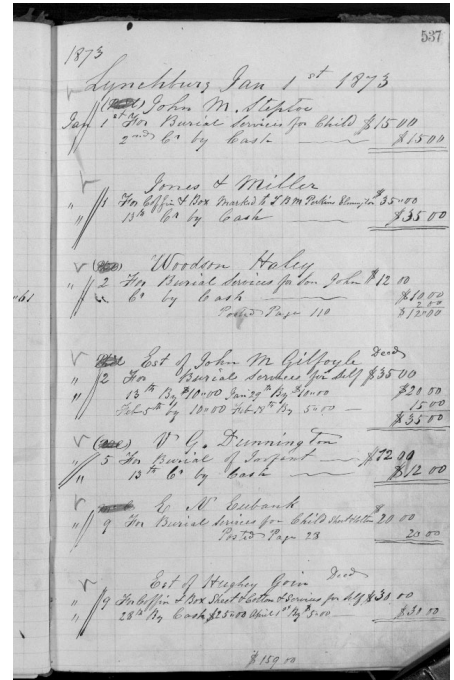 537
1873
Lynchburg Jan 1st 1873
John M. Steptoe
Jan 1st For Burial Services for Child $15.00
" 2nd Cr by Cash $15.00
Jones & Miller
" 1 For Coffin & Box Marked to T B M Perkins 35.00
" 13th Cr by Cash $35.00
Woodson Haley
" 2 For Burial Services for Son John $12.00
" " Cr by Cash $10.00
2.00
Posted Page 110 $12.00
Est of John M Gilfoyle Decd
" 2 For Burial Services for Self $35.00
13th By $10.00 Jan 29th By $10.00 $20.00
Feb 5th by 10.00 Feb By 5.00 15.00
$35.00
V. G. Dunnington
" 5 For Burial of Infant $12.00
" 13th Cr by Cash $12.00
E N Eubank
" 9 For Burial Services for Child $20.00
Posted Page 28 20.00
Est of Hughey Goin Decd
" 9 For Coffin & Box Sheet & Cotton & Services for Self $31.00
" 28th By Cash $25.00 April 1st By $5.00 $31.00
$159.00